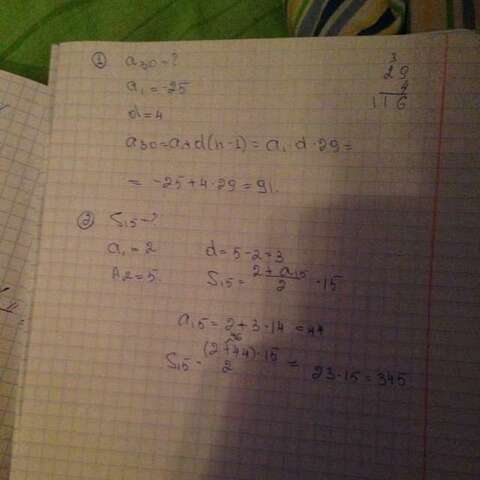 ① a₃₀=?
a₁=-25
d=4
a₃₀=a₁+d(n-1)=a₁·d·29=
=-25+4·29=91.
3
29
4
116
② S₁₅=?
a₁=2 d=5-2=3
A2=5. S₁₅=(2+a₁₅)/2·15
a₁₅=2+3·14=44
S₁₅=(2+44)·15/2= 23·15=345